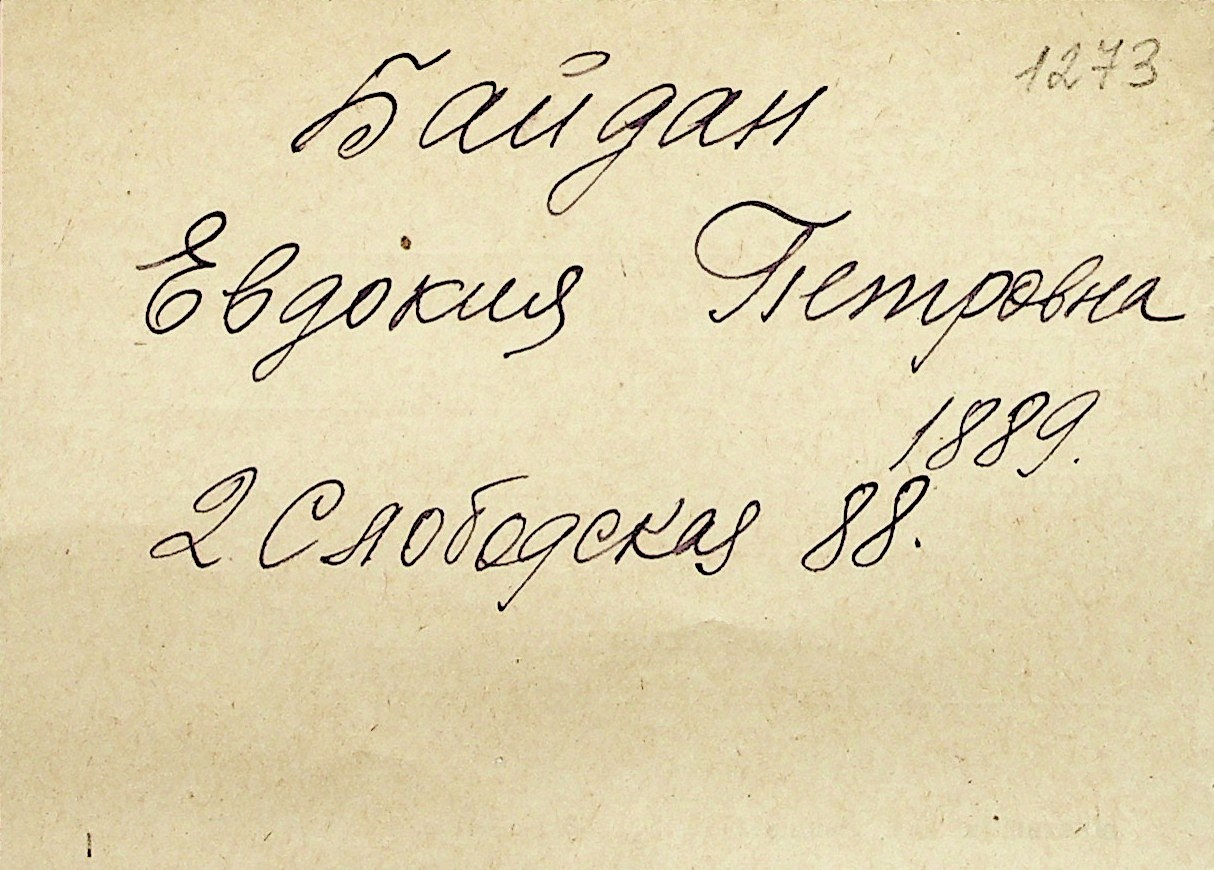 1273
Байдан
Евдокия Петровна
1889.
2 Слободская 88.